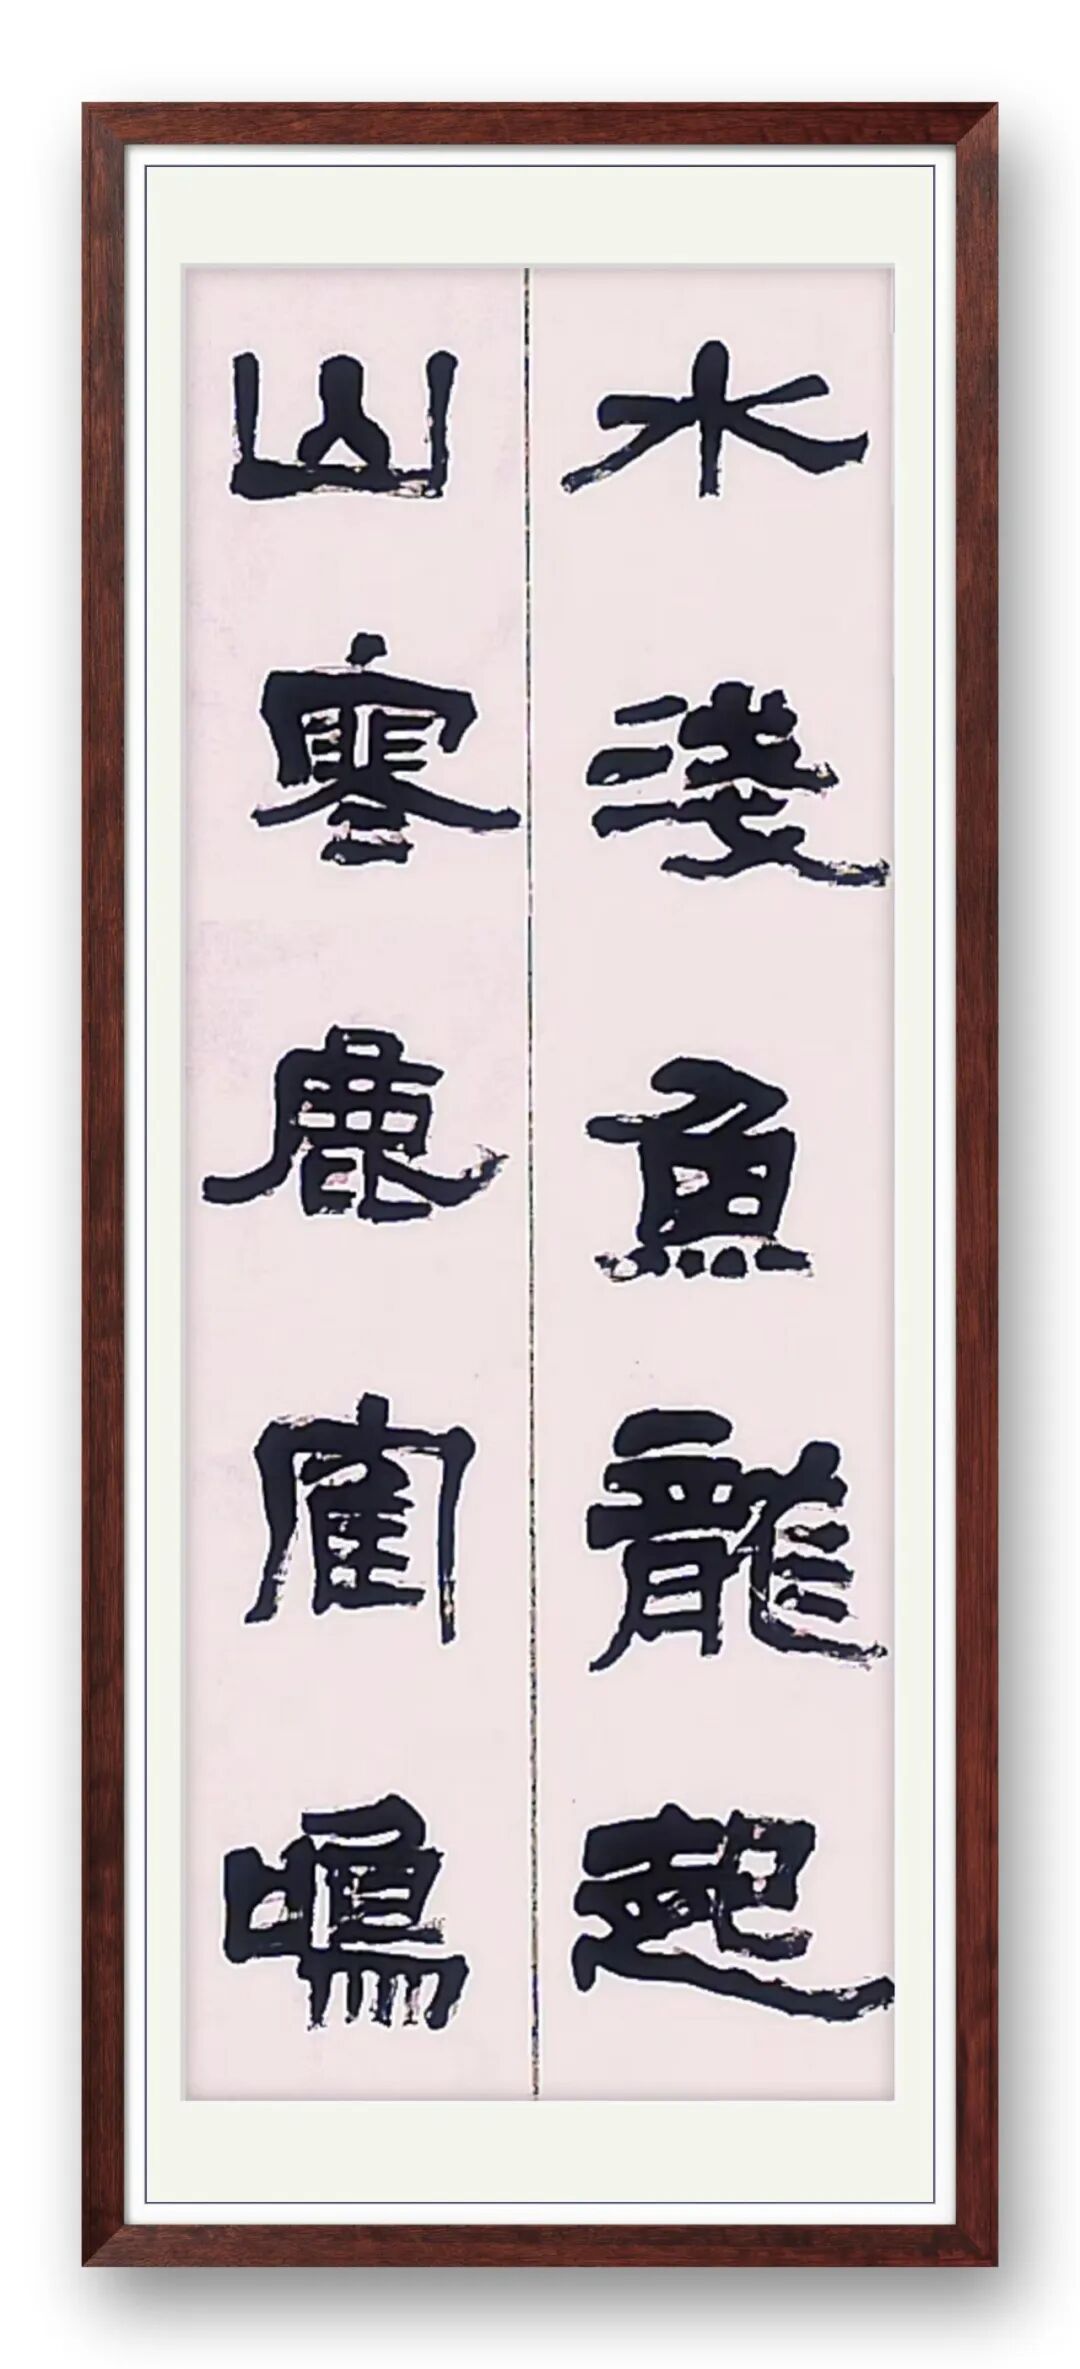 水淺魚龍起
山寒鹿隺鳴